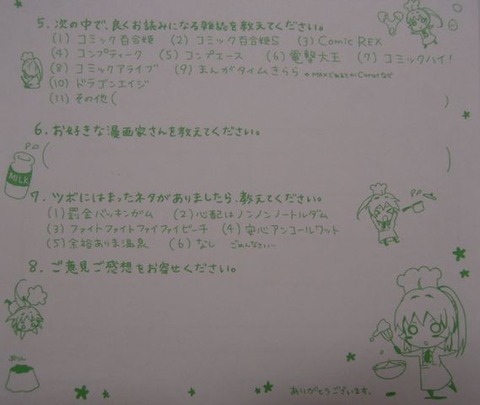 5. 次の中で、良くお読みになる雑誌を教えてください。
(1) コミック百合姫 (2) コミック百合姫S (3) Comic REX
(4) コンプティーク (5) コンプエース (6) 電撃大王 (7) コミックハイ!
(8) コミックアライブ (9) まんがタイムきらら
(10) ドラゴンエイジ
(11) その他 (
6. お好きな漫画家さんを教えてください。
( )
MILK
7. ツボにはまったネタがありましたら、教えてください。
(1) 罰金バッキンガム (2) 心配はノンノンノートルダム
(3) ファイトファイトファイファイビーチ (4) 安心アンコールワット
(5) 余裕ありま温泉 (6) なし ごめんなさい…
8. ご意見ご感想をお寄せください。
ぷりん
ありがとうございます。